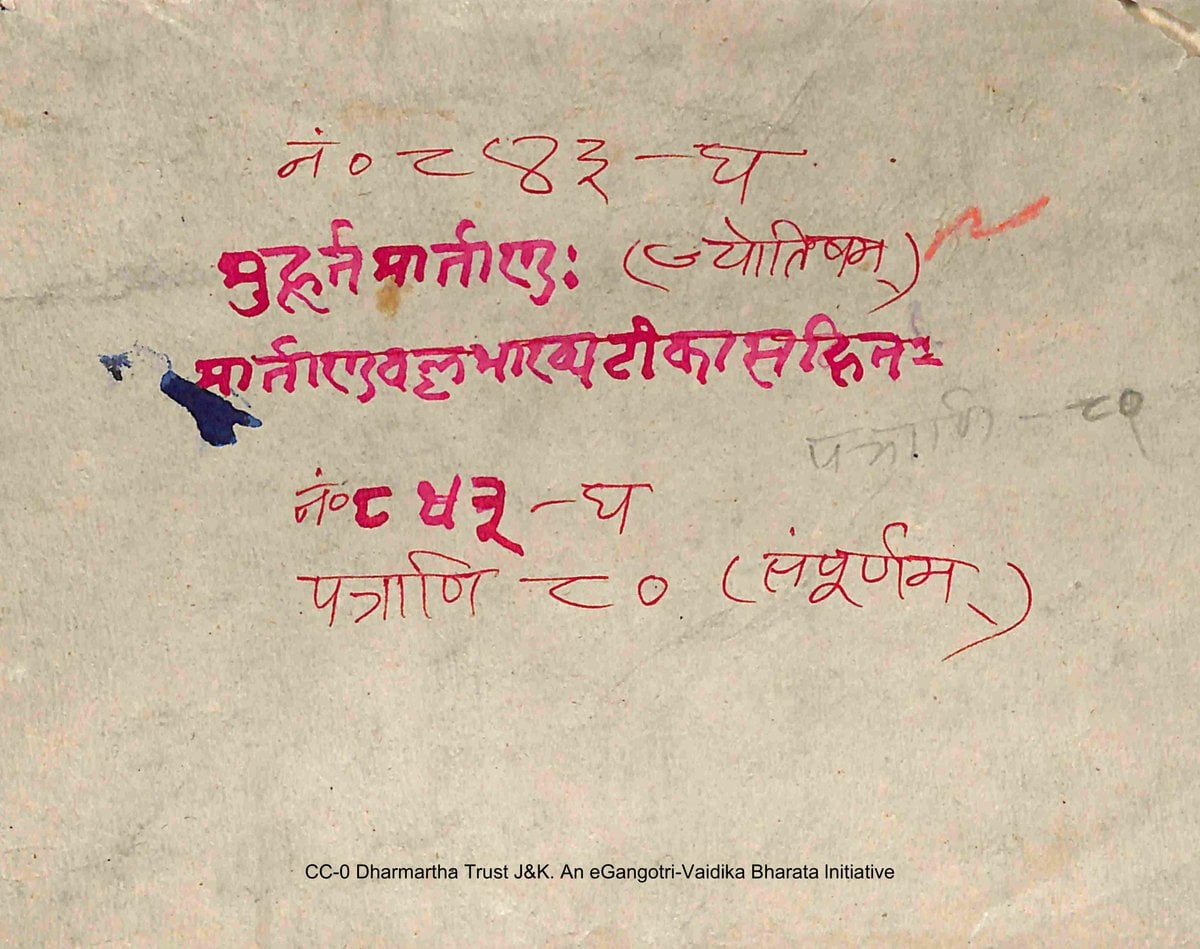 नं० ८४३ - घ
मुहूर्तमार्ताण्डः (ज्योतिषम्)
मार्ताण्डवल्लभाख्यटीकासहितः
पत्राणि - ८०
नं० ८४३ - घ
पत्राणि ८० (संपूर्णम्)
CC-0 Dharmartha Trust J&K. An eGangotri-Vaidika Bharata Initiative